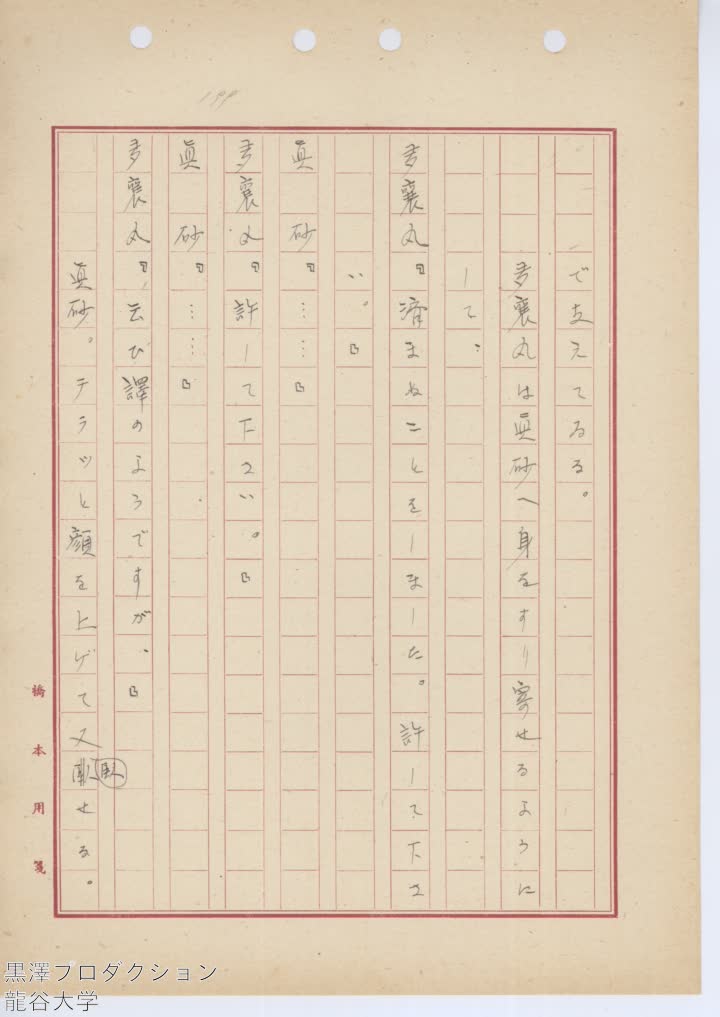 で支えてゐる。
多襄丸は眞砂へ身をすり寄せるように
して、
多襄丸『濟まぬことをしました。許して下さ
い。』
眞 砂『……』
多襄丸『許して下さい。』
眞 砂『……』
多襄丸『云ひ譯のようですが、』
眞砂。チラツと顔を上げて又臥せる。
橋本用箋
黒澤プロダクション
龍谷大学